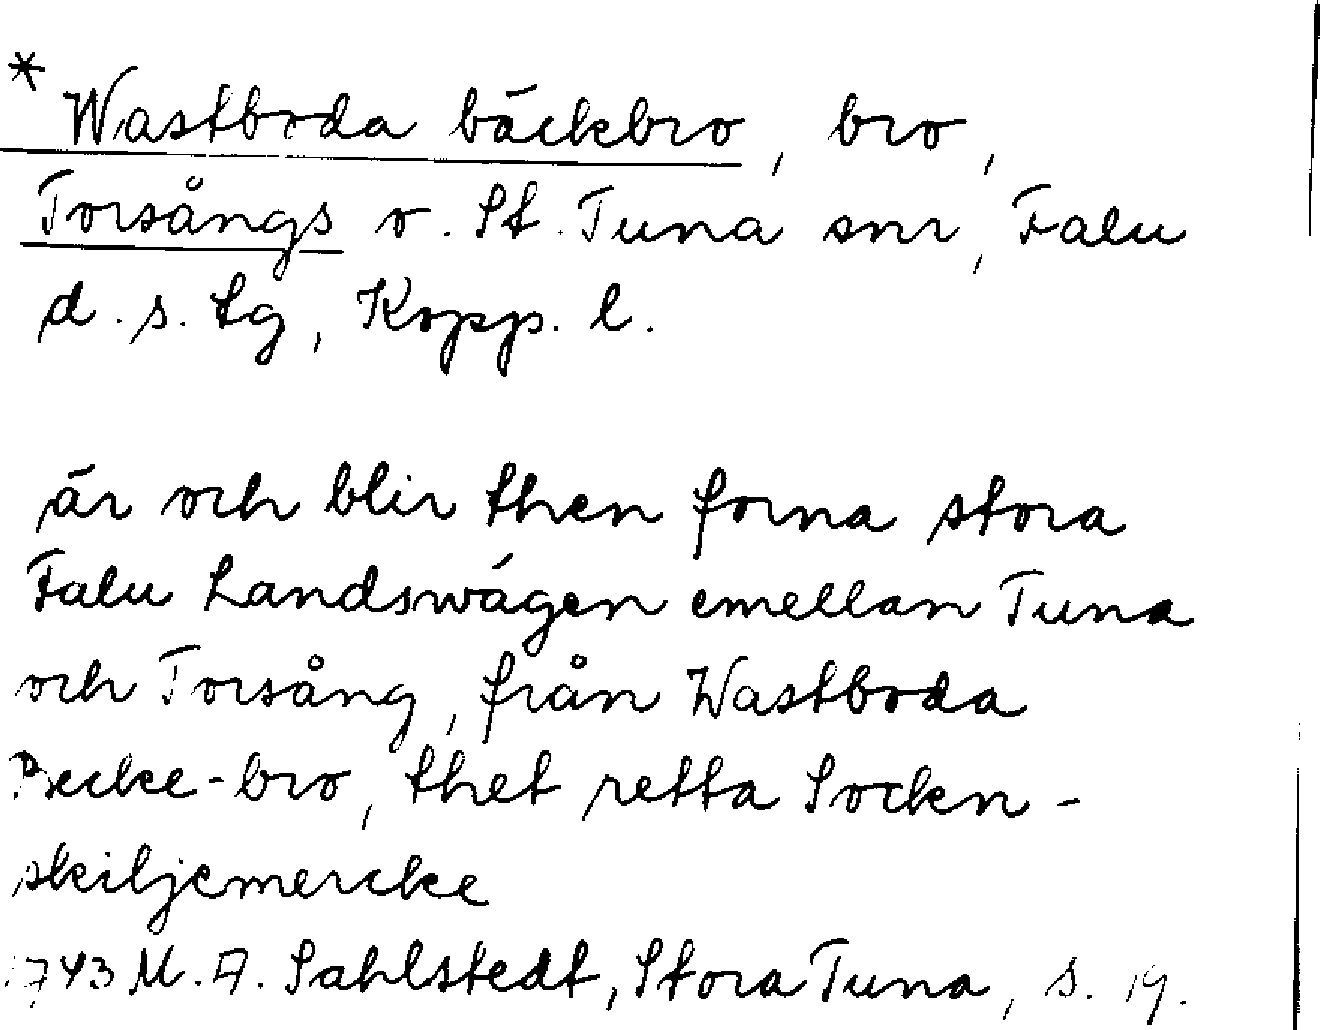 * Wastboda bäckbro, bro,
Torsångs o. St. Tuna snr, Falu
d. s. tg, Kopp. l.
är och blir then forna stora
Falu Landswägen emellan Tuna
och Torsång, från Wastboda
Becke-bro, thet retta Sockn-
skiljemercke
1743 M. A. Sahlstedt, Stora Tuna, s. 19.